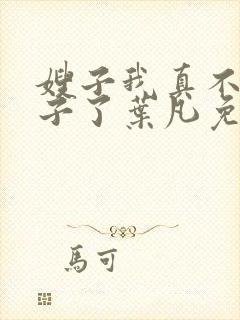 嫂子我真不
子了葉凡免
馬可